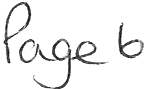 Page 6